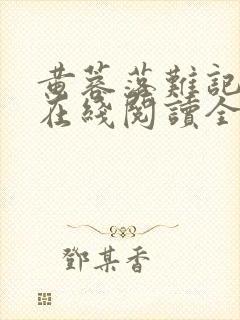 黄蓉落難記
在綫閱讀全
鄧某香